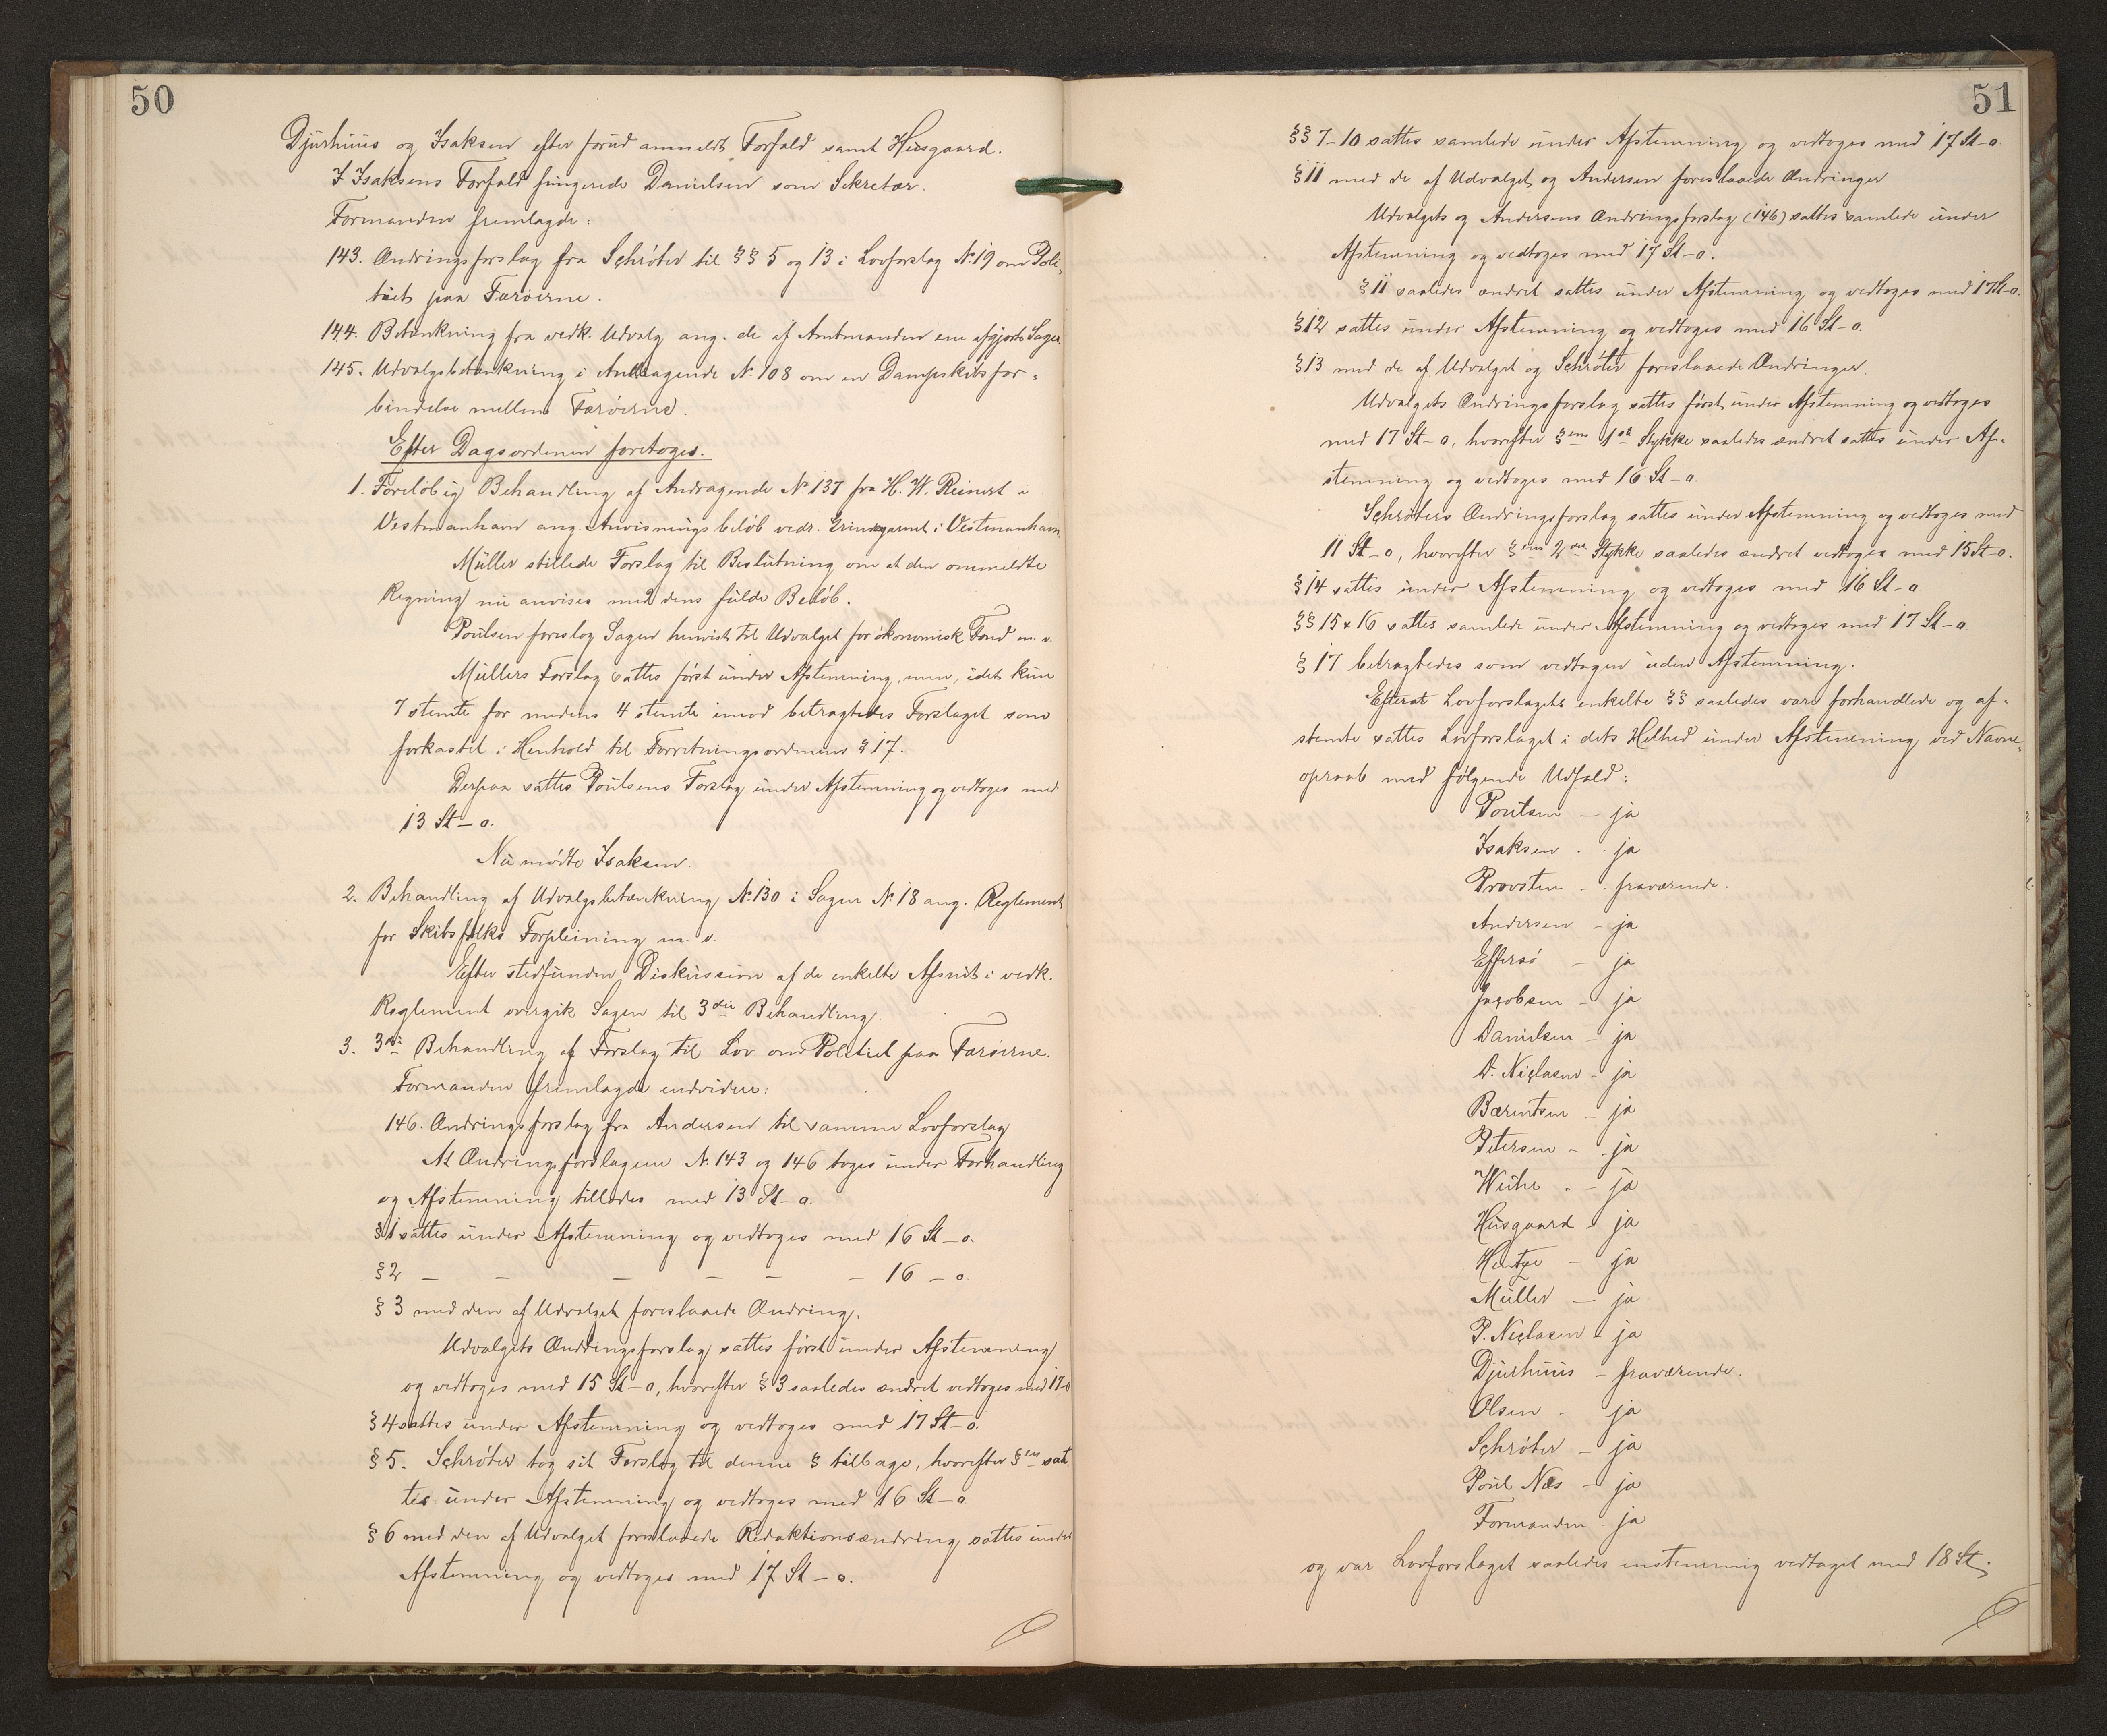 50
Djurhuus og Isaksen efter forud anmeldt Forfald samt Husgaard.
I Isaksens Forfald fungerede Danielsen som Sekretær.
Formanden fremlagde:
143. Ændringsforslag fra Schröter til §§ 5 og 13 i Lovforslag No 19 om Poli-
tiet paa Færøerne.
144. Betænkning fra vedk. Udvalg ang. de af Amtmanden ene afgjorte Sager
145. Udvalgsbetænkning i Andragende No 108 om en Dampskibsfor-
bindelse mellem Færøerne.
Efter Dagsordenen foretoges.
1. Foreløbig Behandling af Andragende No 137 fra H. W. Reinert i
Vestmanhavn ang. Anvisningsbeløb vedr. i Vestmanhavn.
Müller stillede Forslag til Beslutning om at den ommeldte
Regning nu anvises med dens fulde Beløb.
Poulsen foreslog Sagen henvist til Udvalget for økonomisk Fond m. v.
Müllers Forslag sattes først under Afstemning, men, idet kun
7 stemte for medens 4 stemte imod betragtedes Forslaget som
forkastet i Henhold til Forretningsordenens § 17.
Derpaa sattes Poulsens Forslag under Afstemning og vedtoges med
13 St - o.
Nu mødte Isaksen.
2. Behandling af Udvalgsbetænkning No 130 i Sagen No 18 ang. Reglement
for Skibsfolks Forpleining m. v.
Efter stedfunden Diskussion af de enkelte Afsnit i vedk.
Reglement overgik Sagen til 3die Behandling.
3. 3die Behandling af Forslag til Lov om Politiet paa Færøerne.
Formanden fremlagde endvidere:
146. Ændringsforslag fra Andersen til samme Lovforslag
At Ændringsforslagene No 143 og 146 toges under Forhandling
og Afstemning tillodes med 13 St - o.
§ 1 sattes under Afstemning og vedtoges med 16 St - o.
§ 2 — — — — — — 16 - o.
§ 3 med den af Udvalget foreslaaede Ændring.
Udvalgets Ændringsforslag sattes først under Afstemning
og vedtoges med 15 St - o, hvorefter § 3 saaledes ændret vedtoges med 17-o
§ 4 sattes under Afstemning og vedtoges med 17 St - o.
§ 5. Schröter tog sit Forslag til denne § tilbage, hvorefter §en sat-
tes under Afstemning og vedtoges med 16 St - o
§ 6 med den af Udvalget foreslaaede Redaktionsændring sattes under
Afstemning og vedtoges med 17 St - o.
51
§§ 7-10 sattes samlede under Afstemning og vedtoges med 17 St - o.
§ 11 med de af Udvalget og Andersen foreslaaede Ændringer
Udvalgets og Andersens Ændringsforslag (146) sattes samlede under
Afstemning og vedtoges med 17 St - o.
§ 11 saaledes ændret sattes under Afstemning og vedtoges med 17 St - o.
§ 12 sattes under Afstemning og vedtoges med 16 St - o.
§ 13 med de af Udvalget og Schröter foreslaaede Ændringer.
Udvalgets Ændringsforslag sattes først under Afstemning og vedtoges
med 17 St - o, hvorefter §ens 1ste Stykke saaledes ændret sattes under Af-
stemning og vedtoges med 16 St - o.
Schröters Ændringsforslag sattes under Afstemning og vedtoges med
11 St - o, hvorefter §ens 2det Stykke saaledes ændret vedtoges med 15 St - o.
§ 14 sattes under Afstemning og vedtoges med 16 St - o
§§ 15 & 16 sattes samlede under Afstemning og vedtoges med 17 St - o
§ 17 betragtedes som vedtagen uden Afstemning.
Efterat Lovforslagets enkelte §§ saaledes vare forhandlede og af-
stemte sattes Lovforslaget i dets Helhed under Afstemning ved Navne-
opraab med følgende Udfald:
Poulsen - ja
Isaksen - ja
Provsten - fraværende.
Andersen - ja
Effersö - ja
Jacobsen - ja
Danielsen - ja
D. Niclasen - ja
Bærentsen - ja
Petersen - ja
Weihe - ja
Husgaard - ja
Hentze - ja
Müller - ja
P. Niclasen - ja
Djurhuus - fraværende.
Olsen - ja
Schröter - ja
Poul Næs - ja
Formanden - ja
og var Lovforslaget saaledes enstemmig vedtaget med 18 St.